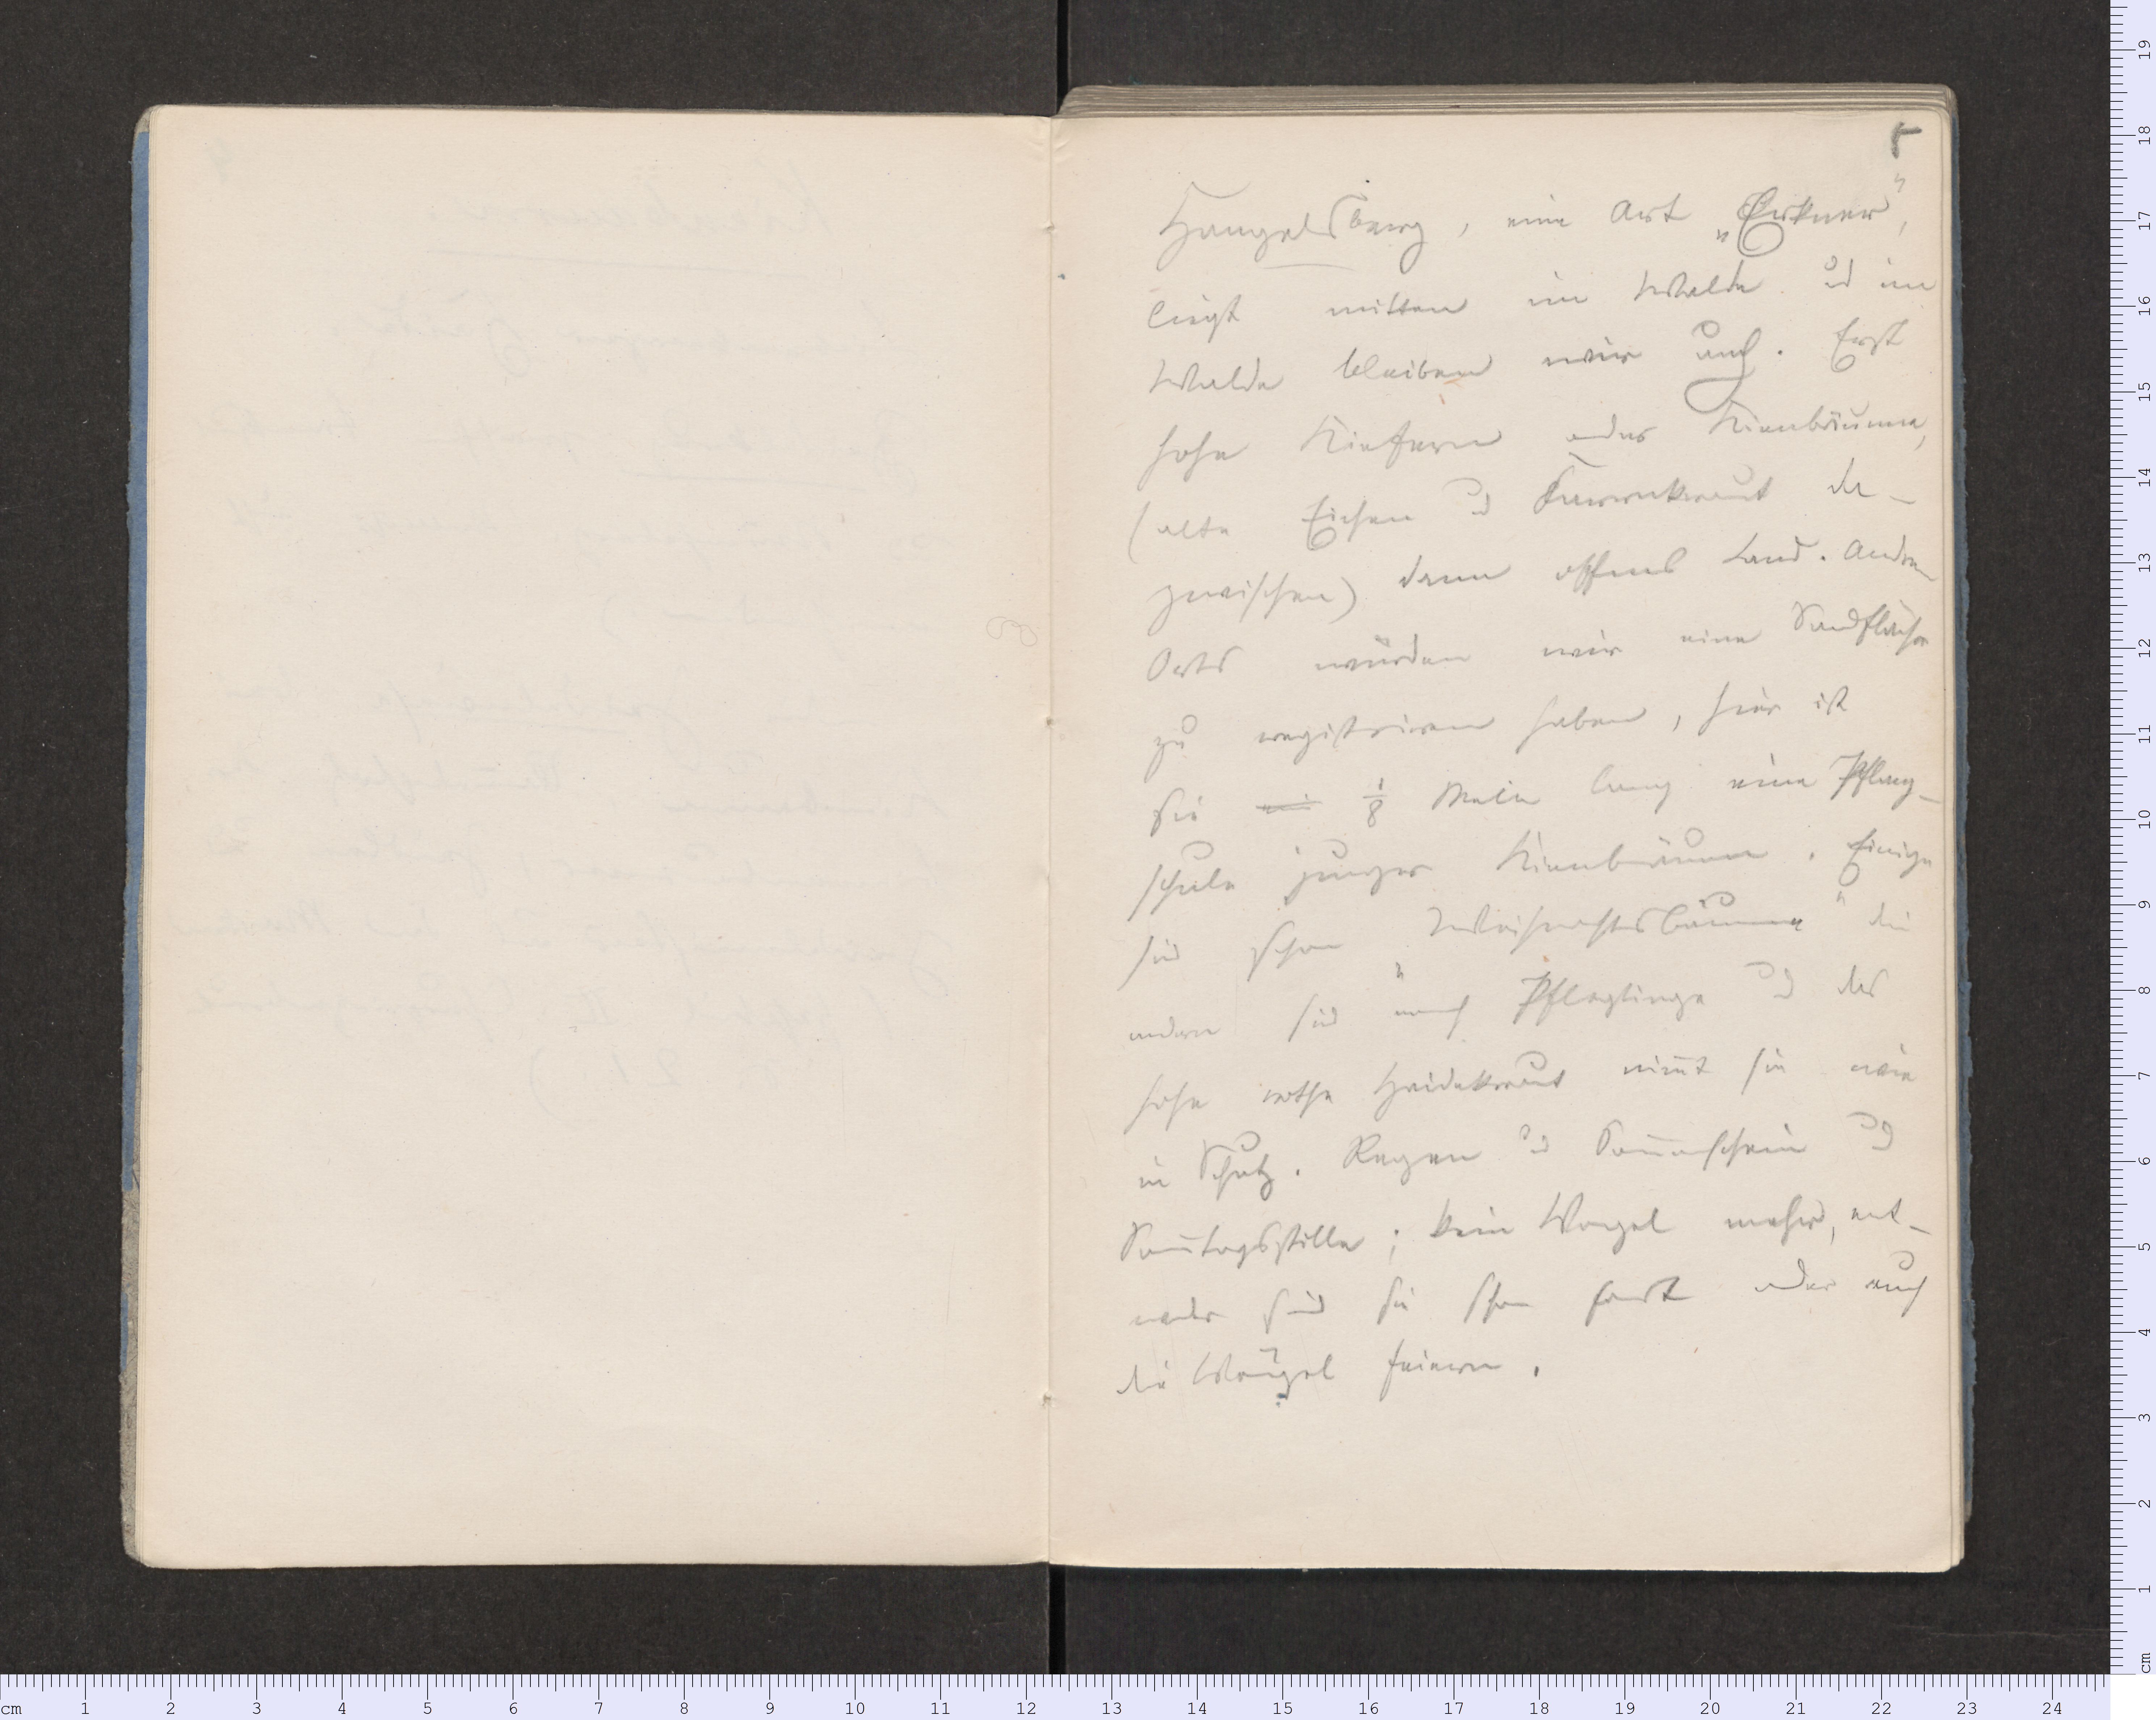 5
Hangelsberg, eine Art „Erkner",
liegt mitten im Walde ud im
Walde bleiben wir auch. Erst
hohe Kiefern oder Kienbäume,
(alte Eichen ud Farrnkraut da-
zwischen) dann offnes Land. Andren
Orts würden wir eine Sandfläche
zu registriren haben, hier ist
sie ein 1/8 Meile lang eine Pfleg-
schule junger Kienbäume. Einige
sind schon „Weihnachtsbäume" die
andern sind noch Pfleglinge ud das
hohe rothe Haidekraut nim̅t sie wie
in Schutz. Regen ud Son̅enschein ud
Son̅tagsstille; kein Vogel mehr, ent-
weder sind sie schon fort oder auch
die Vögel feiern.